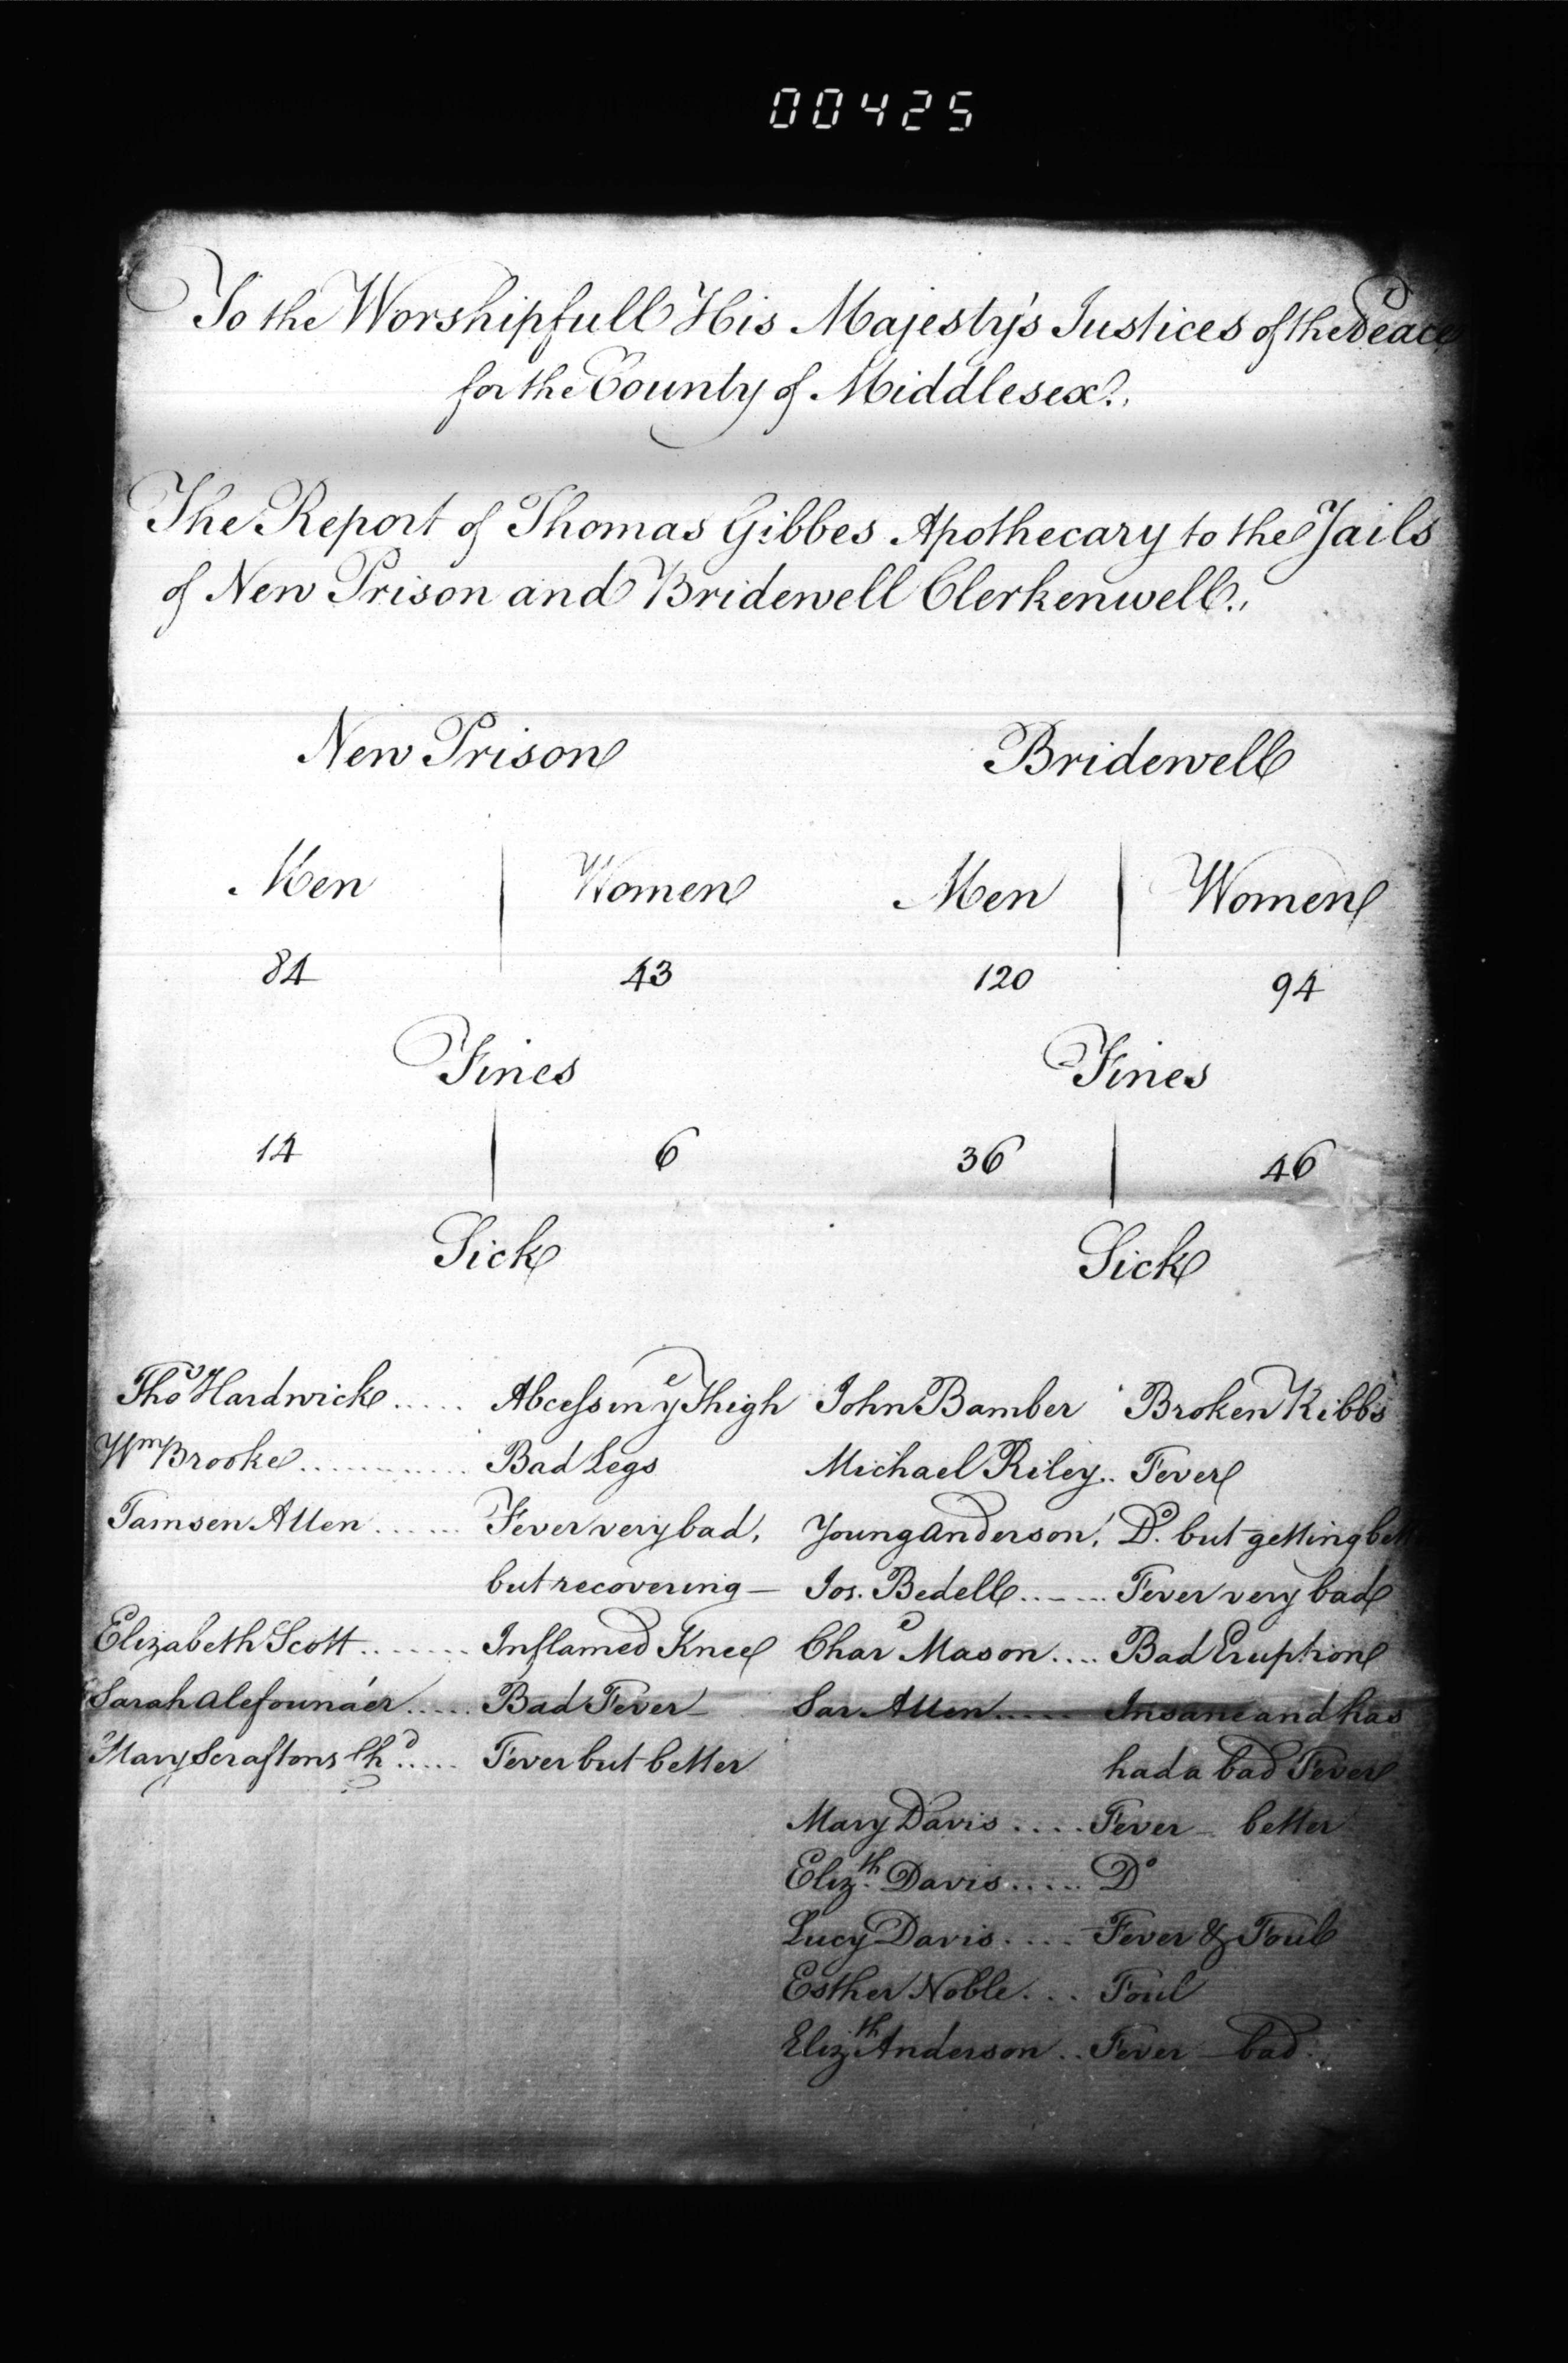 00425
To the Worshipfull His Majesty's Justices of the Peace
for the County of Middlesex.
The Report of Thomas Gibbes Apothecary to the Jails
of New Prison and Bridewell Clerkenwell.
New Prison Bridewell
Men Women Men Women
84 43 120 94
Fines Fines
14 6 36 46
Sick Sick
Thos Hardwick ..... Abcess in ye Thigh John Bamber Broken Ribbs
Wm Brooke ............ Bad Legs Michael Riley .. Fever
Tamsen Allen ...... Fever very bad, Young Anderson, Do. but getting bett
but recovering — Jos. Bedell ...... Fever very bad
Elizabeth Scott ....... Inflamed Knee Chas Mason .... Bad Eruption
Sarah Alefounder ..... Bad Fever Sar Allen ..... Insane and has
Mary Scraftons Chd ..... Fever but better had a bad Fever
Mary Davis .... Fever – better
Elizth Davis ..... Do
Lucy Davis .... Fever & Foul
Esther Noble ... Foul
Elizth Anderson .. Fever – bad.